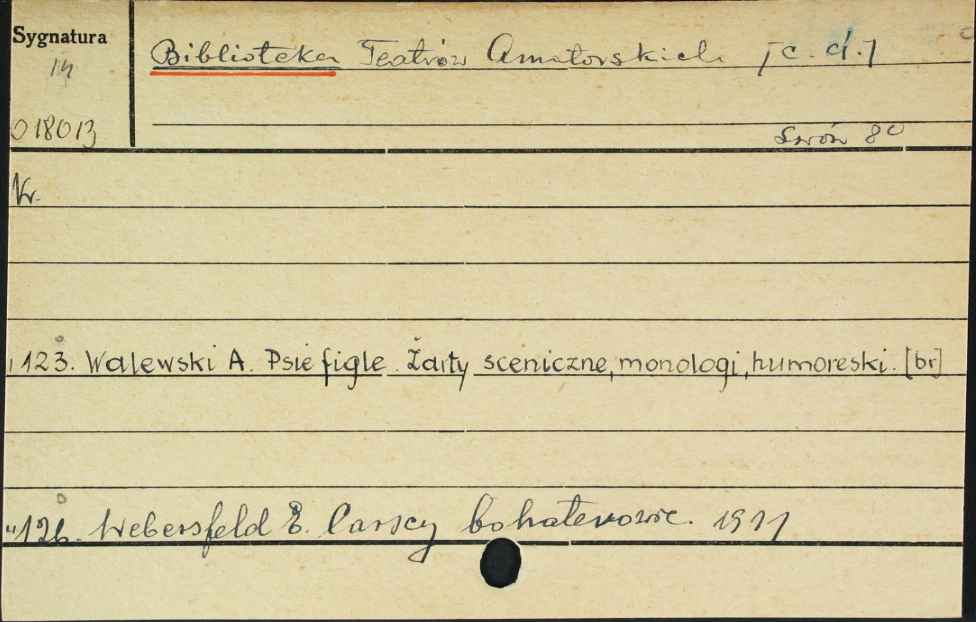 Sygnatura
Biblioteka Teatrów Amatorskich [c. d.]
018013
Lwów 8°
Nr.
123. Walewski A. Psie figle. Żarty sceniczne, monologi, humoreski. [br]
"126. Webersfeld E. Carscy bohaterowie. 1911